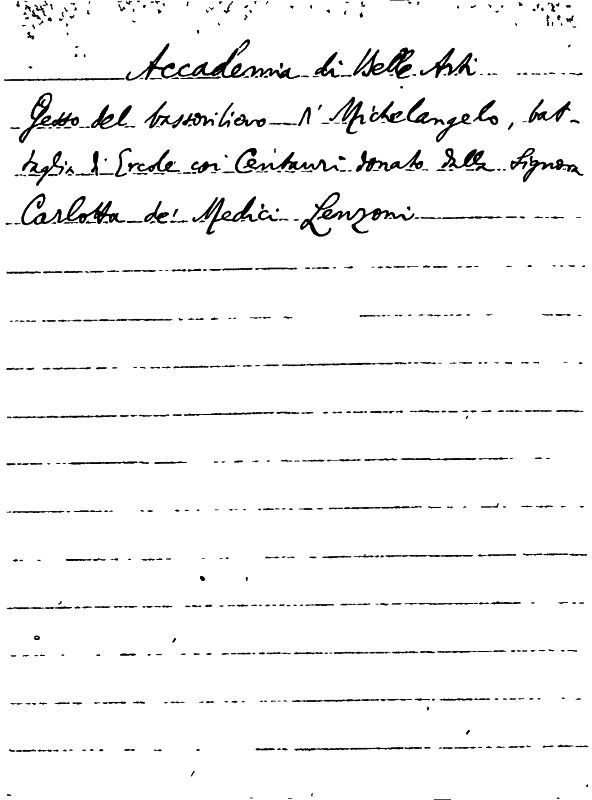 Accademia di Belle Arti
Gesso del bassorilievo di Michelangelo, bat-
taglia di Ercole coi Centauri donato dalla Signora
Carlotta de' Medici Lenzoni